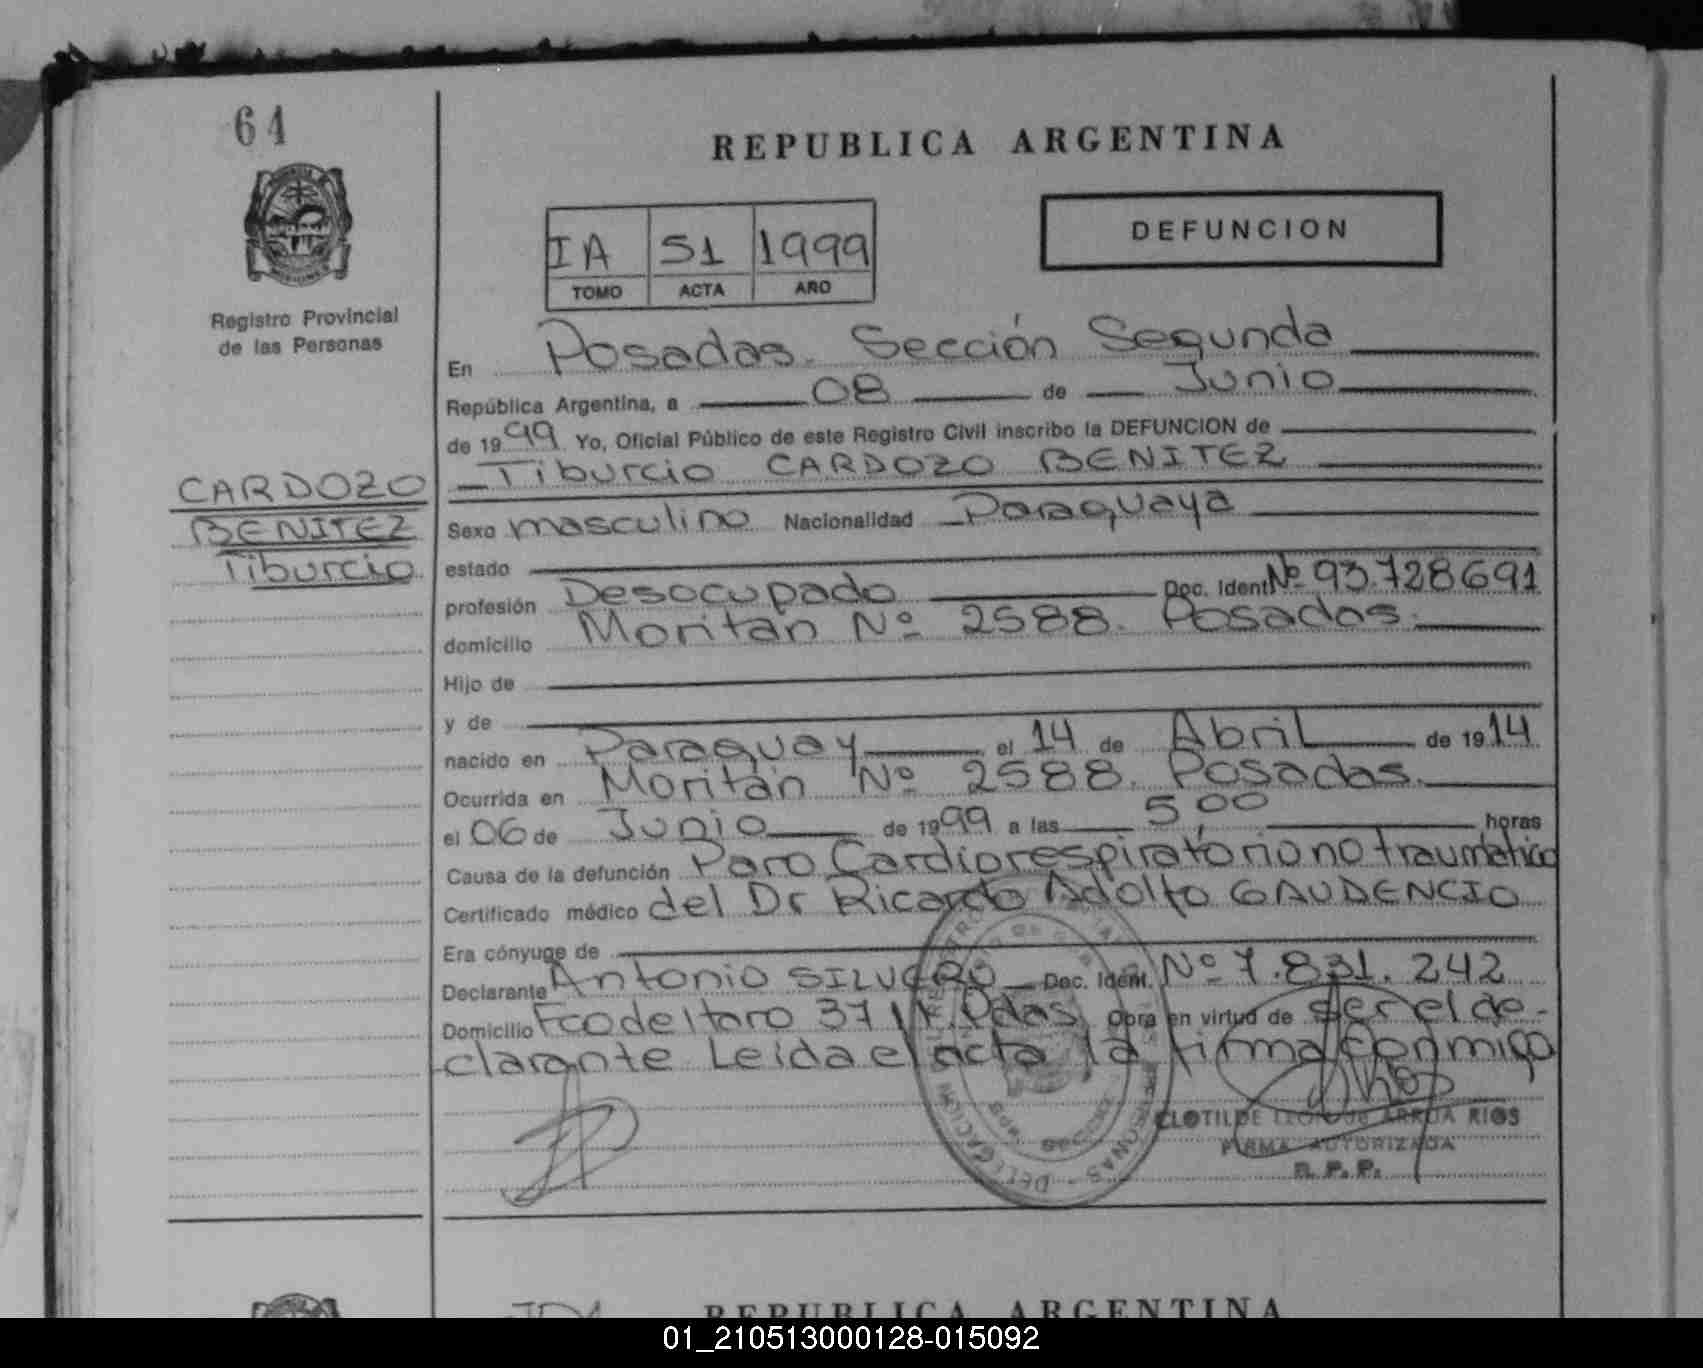 61
REPUBLICA ARGENTINA
DEFUNCION
IA 51 1999
TOMO ACTA AÑO
Registro Provincial
de las Personas
CARDOZO
BENITEZ
Tiburcio
En Posadas. Sección Segunda
República Argentina, a 08 de Junio
de 1999 Yo, Oficial Público de este Registro Civil inscribo la DEFUNCION de
Tiburcio CARDOZO BENITEZ
Sexo masculino Nacionalidad Paraguaya
estado
profesión Desocupado Doc. Ident. Nº 93.728691
domicilio Moritán Nº 2588. Posadas.
Hijo de
y de
nacido en Paraguay el 14 de Abril de 1914
Ocurrida en Moritán Nº 2588. Posadas.
el 06 de Junio de 1999 a las 5 00 horas
Causa de la defunción Paro Cardiorespiratorio no traumático
Certificado médico del Dr Ricardo Adolfo GAUDENCIO
Era cónyuge de
Declarante Antonio SILVERO Doc. Ident. Nº 7.831.242
Domicilio Fco de Haro 37 Pdas Obra en virtud de ser el de-
clarante Leida el acta la firma conmigo
CLOTILDE ARRUA RIOS
FIRMA AUTORIZADA
R. P. P.
DELEGACION
REPUBLICA ARGENTINA
01_210513000128-015092